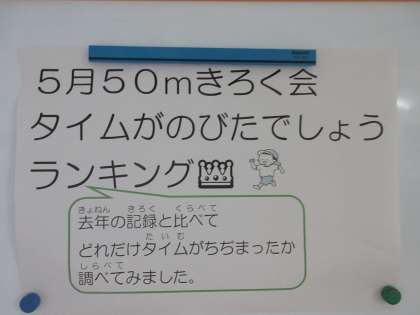 ５月５０ｍきろく会
タイムがのびたでしょう
ランキング
きょねん きろく くらべて
去年の記録と比べて
たいむ
どれだけタイムがちぢまったか
しらべて
調べてみました。